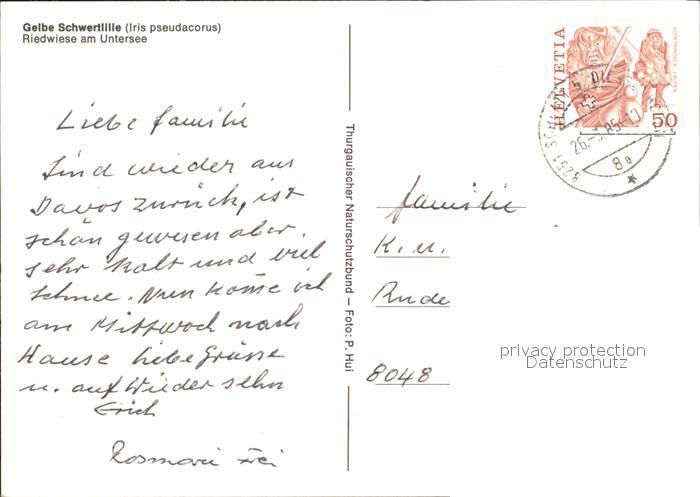 Gelbe Schwertlilie (Iris pseudacorus)
Riedwiese am Untersee
Liebe Familie
Sind wieder aus
Davos zurück, ist
schön gewesen aber
sehr kalt und viel
Schnee. Nun komme ich
am Mittwoch nach
Hause liebe Grüsse
u. auf Wiedersehn
Erich
Rosmarie Frei
Thurgauischer Naturschutzbund – Foto: P. Hui
HELVETIA
50
8251
26.-3.85-10
8a
Familie
K. u.
8048
privacy protection
Datenschutz